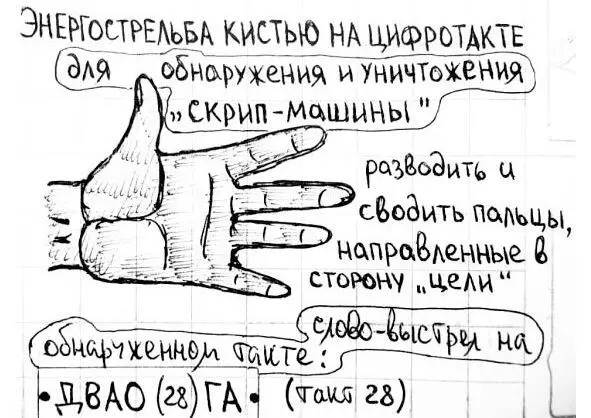 ЭНЕРГОСТРЕЛЬБА КИСТЬЮ НА ЦИФРОТАКТЕ
для обнаружения и уничтожения
„СКРИП-МАШИНЫ"
разводить и
сводить пальцы,
направленные в
сторону „цели"
слово-выстрел на
обнаруженном такте:
• ДВАО (28) ГА • (такт 28)